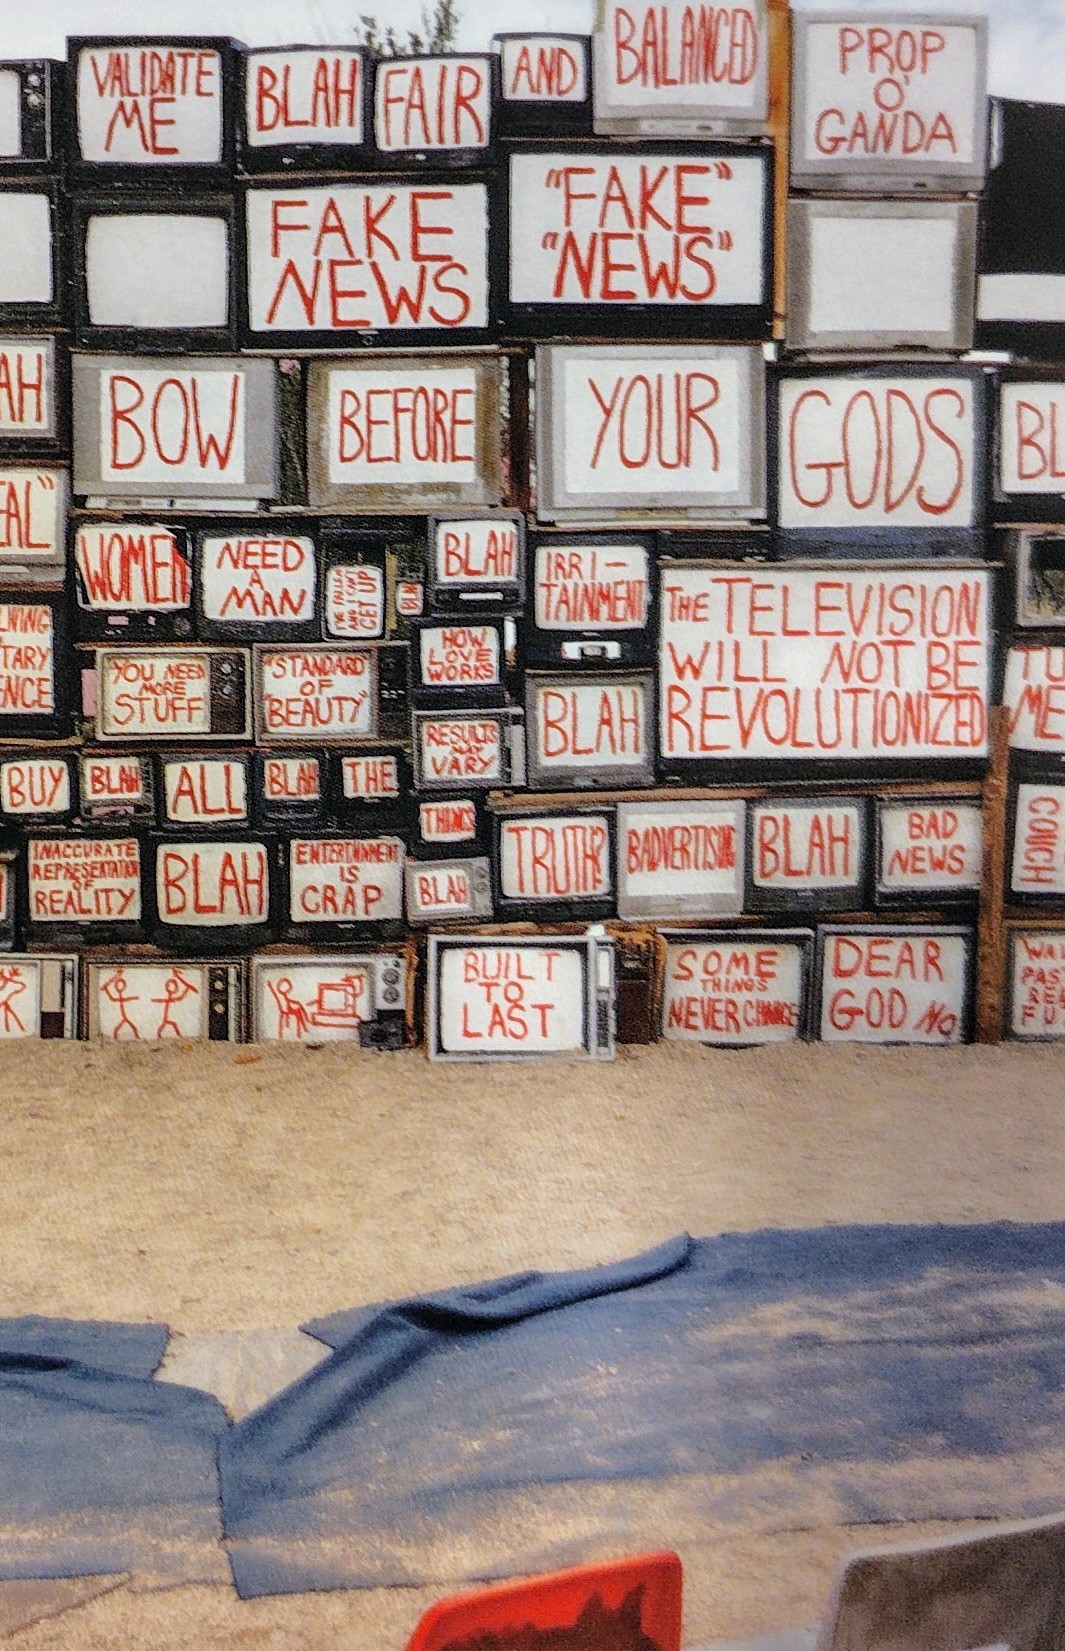 VALIDATE
ME
BLAH
FAIR
AND
BALANCED
PROP
O'
GANDA
FAKE
NEWS
"FAKE"
"NEWS"
AH
BOW
BEFORE
YOUR
GODS
BL
WOMEN
NEED
A
MAN
I'VE FALLEN
AND CAN'T
GET UP
BLAH
IRRI-
TAINMENT
THE TELEVISION
WILL NOT BE
REVOLUTIONIZED
YOU NEED
MORE
STUFF
"STANDARD"
OF
"BEAUTY"
HOW
LOVE
WORKS
RESULTS
MAY
VARY
BLAH
TU
ME
BUY
BLAH
ALL
BLAH
THE
THINGS
INACCURATE
REPRESENTATION
OF
REALITY
BLAH
ENTERTAINMENT
IS
CRAP
BLAH
TRUTH?
BADVERTISING
BLAH
BAD
NEWS
COUCH
BUILT
TO
LAST
SOME
THINGS
NEVER CHANGE
DEAR
GOD NO